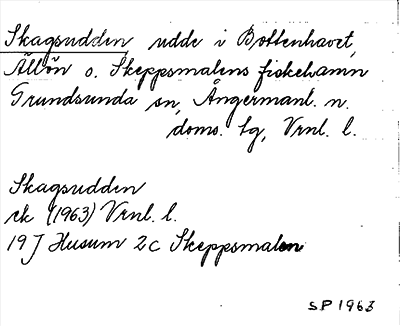 Skagsudden, udde i Bottenhavet,
Ällön o. Skeppsmalens fiskehamn
Grundsunda sn, Ångermanl. n.
doms. tg, Vrnl. l.
Skagsudden
ek (1963) Vrnl. l.
19 J Husum 2c Skeppsmalen
SP 1963